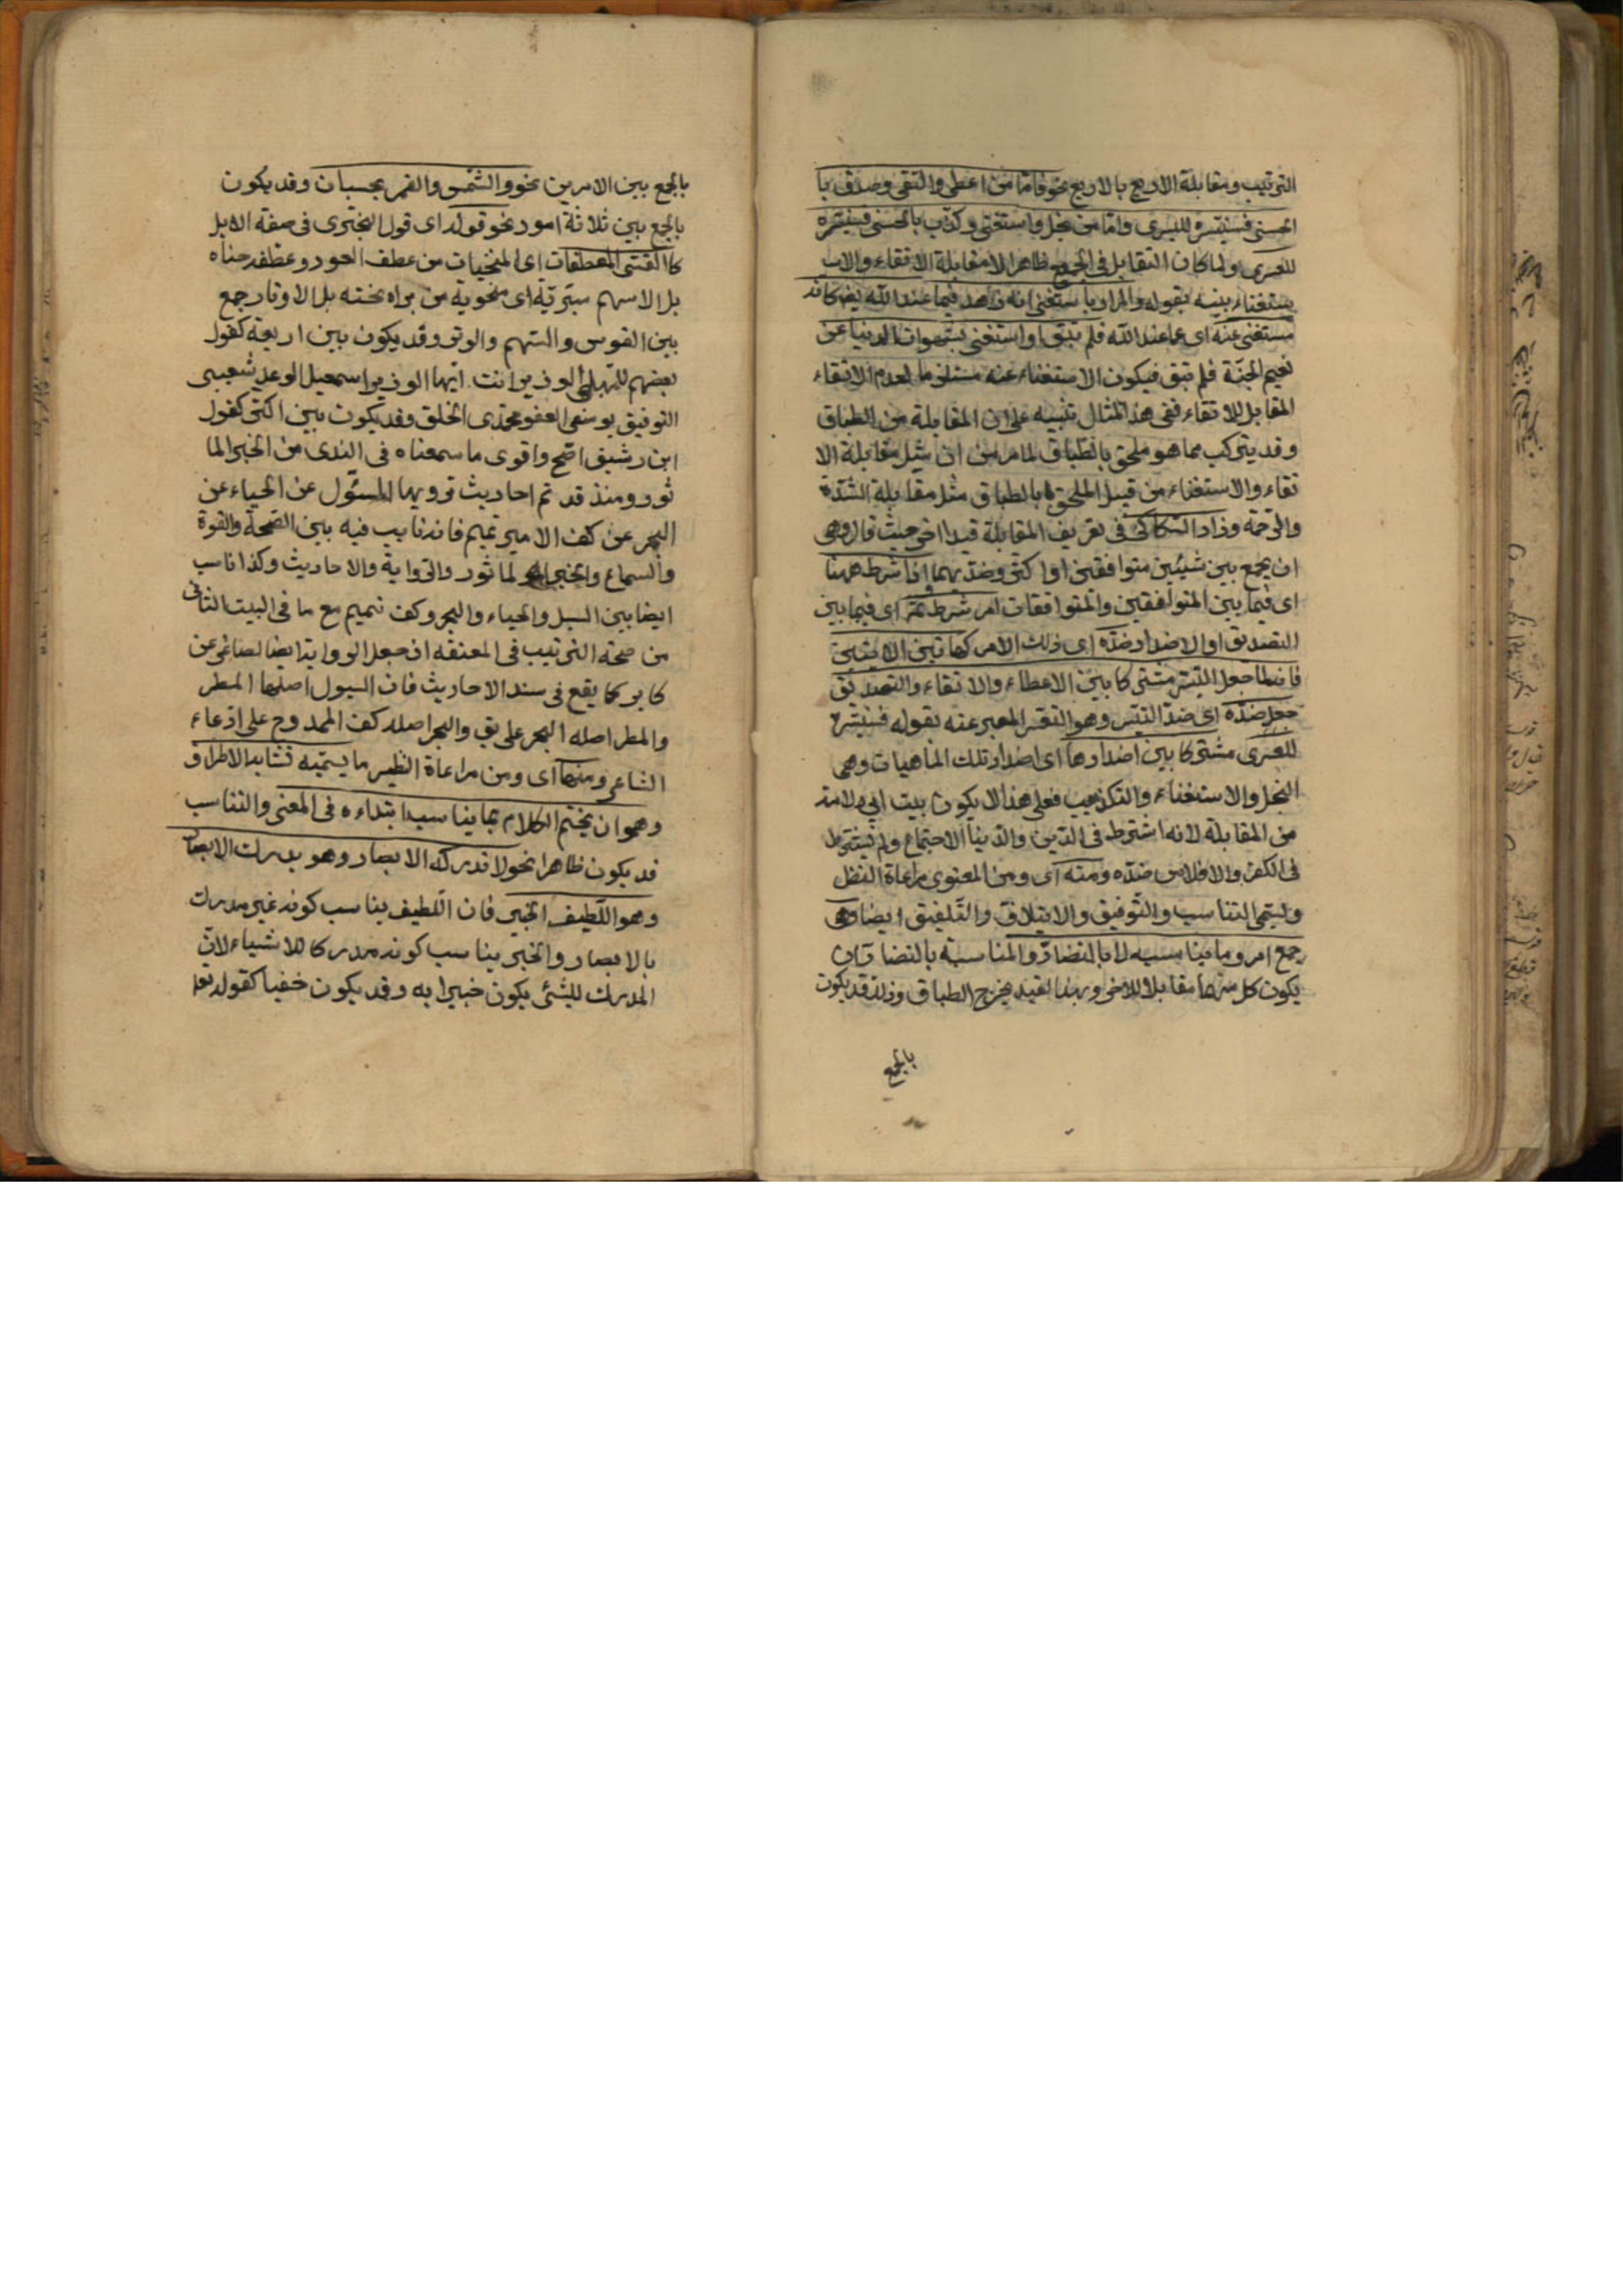 الترتيب ومقابلة الاربع بالاربع نحو فاما من اعطى واتقى وصدق با
لحسنى فسنيسره لليسرى واما من بخل واستغنى وكذب بالحسنى فسنيسره
للعسرى ولما كان التقابل فى الجميع ظاهرا الا مقابلة الاتقاء والاس
ستغناء بينه بقوله والمراد باستغنى انه زهد فيما عند الله تعا كانه
مستغنى عنه اى عما عند الله فلم يتق او استغنى بشهوات الدنيا عن
نعيم الجنة فلم يتق فيكون الاستغناء عنه مستلزما لعدم الاتقاء
المقابل للاتقاء ففى هذا المثال تنبيه على ان المقابلة من الطباق
وقد يتركب مما هو ملحق بالطباق لما مر من ان مثل مقابلة الا
تقاء والاستغناء من قبيل الملحق بالطباق مثل مقابلة الشدة
والرحمة وزاد السكاكى فى تعريف المقابلة قيدا اخر حيث قال وهى
ان يجمع بين شيئين متوافقين او اكثر وضديهما واذا شرط ههنا
اى فيما بين المتوافقين والمتوافقات امر شرط ثمة اى فيما بين
الضدين او الاضداد ضده اى ذلك الامر كهاتين الايتين
فانه لما جعل التيسر مشتركا بين الاعطاء والاتقاء والتصديق
جعل ضده اى ضد التيسر وهو التعسر المعبر عنه بقوله فسنيسره
للعسرى مشتركا بين اضدادها اى اضداد تلك الماهيات وهى
البخل والاستغناء والتكذيب فعلى هذا لا يكون بيت ابى دلامة
من المقابلة لانه اشترط فى الدين والدنيا الاجتماع ولم يشترط
فى الكفر والافلاس ضده ومنه اى ومن المعنوى مراعاة النظر
ويسمى التناسب والتوفيق والايتلاف والتلفيق ايضا وهى
جمع امر وما يناسبه لا بالتضاد والمناسبة بالتضاد ان
يكون كل منهما مقابلا للاخر وبهذا القيد يخرج الطباق وذلك قد يكون
بالجمع
بالجمع بين الامرين نحو والشمس والقمر بحسبان وقد يكون
بالجمع بين ثلاثة امور نحو قوله اى قول البحترى فى صفة الابل
كالقسى المعطفات اى المنحنيات من عطف العود وعطفه حناه
بل الاسهم مبرية اى منحوتة من براه نحته بل الاوتار جمع
بين القوس والسهم والوتر وقد يكون بين اربعة كقول
بعضهم للمهلبى الوزير انت ايها الوزير اسمعيل الوعد شعيبى
التوفيق يوسفى العفو محمدى الخلق وقد يكون بين اكثر كقول
ابن رشيق اصح واقوى ما سمعناه فى الندى من الخبر الما
ثور ومنذ قد تم احاديث ترويها السيول عن الحياء عن
البحر عن كف الامير تميم فانه ناسب فيه بين الصحة والقوة
والسماع والخبر الماثور والرواية والاحاديث وكذا ناسب
ايضا بين السيل والحياء والبحر وكف تميم مع ما فى البيت الثانى
من صحة الترتيب فى العنعنة اذ جعل الرواية ايضا لصاغر عن
كابر كما يقع فى سند الاحاديث فان السيول اصلها المطر
والمطر اصله البحر على يق والبحر اصله كف الممدوح على ادعاء
الشاعر ومنها اى ومن مراعاة النظير ما يسميه تشابه الاطراف
وهو ان يختم الكلام بما يناسب ابتداءه فى المعنى والتناسب
قد يكون ظاهرا نحو لا تدركه الابصار وهو يدرك الابصار
وهو اللطيف الخبير فان اللطيف يناسب كونه غير مدرك
بالابصار والخبير يناسب كونه مدركا للاشياء لان
المدرك للشئ يكون خبيرا به وقد يكون خفيا كقوله تعا